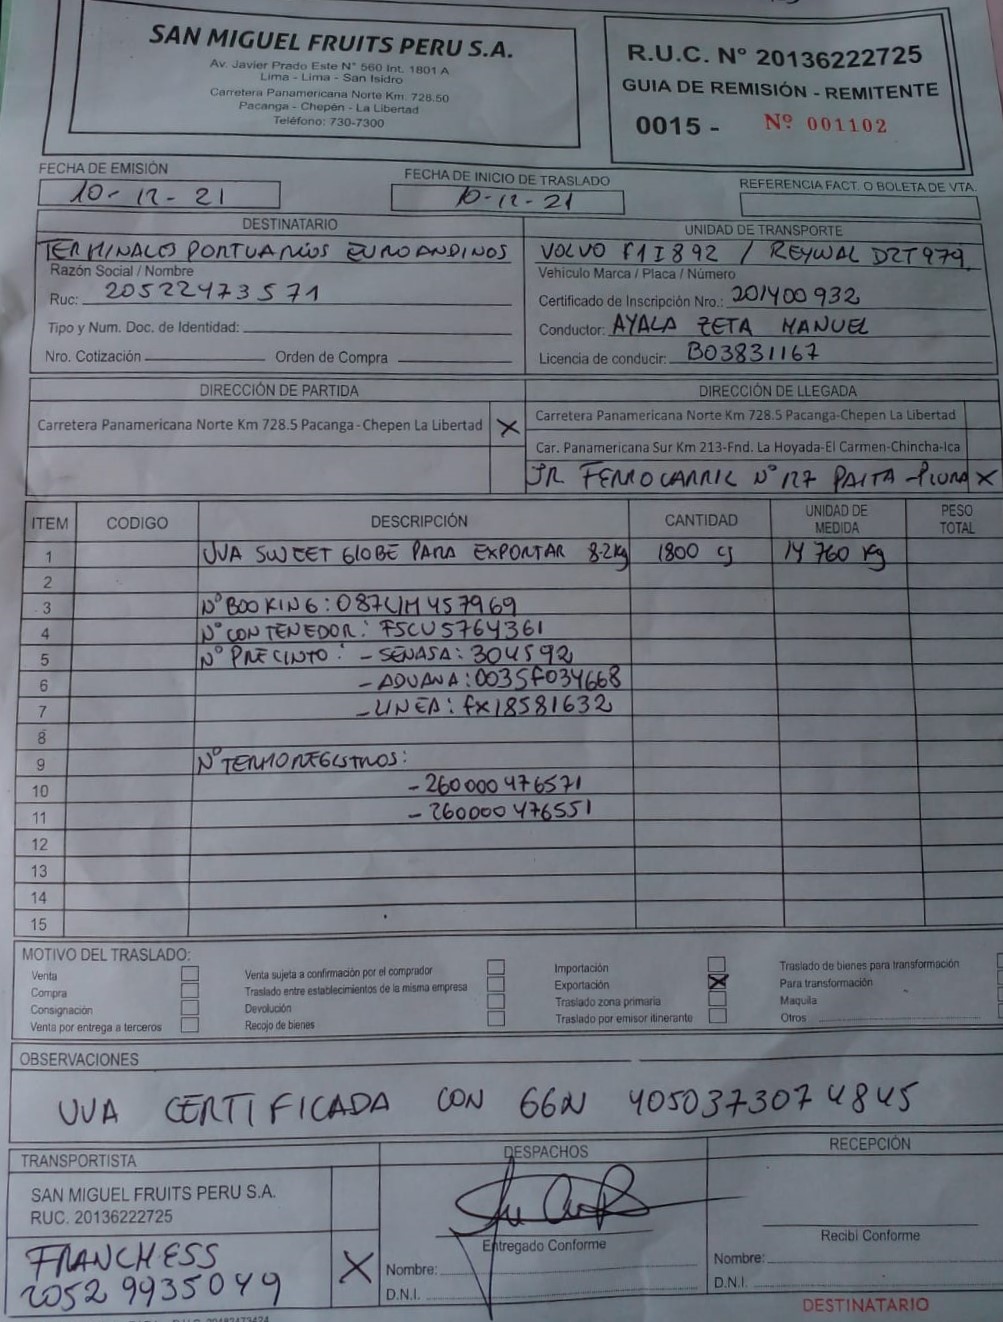 SAN MIGUEL FRUITS PERU S.A.
Av. Javier Prado Este N° 560 Int. 1801 A
Lima - Lima - San Isidro
Carretera Panamericana Norte Km. 728.50
Pacanga - Chepén - La Libertad
Teléfono: 730-7300
R.U.C. N° 20136222725
GUIA DE REMISIÓN - REMITENTE
0015 - Nº 001102
FECHA DE EMISIÓN
10-12-21
FECHA DE INICIO DE TRASLADO
10-12-21
REFERENCIA FACT. O BOLETA DE VTA.
DESTINATARIO
TERMINALES PORTUARIOS EUROANDINOS
Razón Social / Nombre
Ruc: 20522473571
Tipo y Num. Doc. de Identidad:
Nro. Cotización Orden de Compra
UNIDAD DE TRANSPORTE
VOLVO F1I892 / REYWAL DZT979
Vehículo Marca / Placa / Número
Certificado de Inscripción Nro.: 201400932
Conductor: AYALA ZETA MANUEL
Licencia de conducir: B03831167
DIRECCIÓN DE PARTIDA
Carretera Panamericana Norte Km 728.5 Pacanga-Chepen La Libertad X
DIRECCIÓN DE LLEGADA
Carretera Panamericana Norte Km 728.5 Pacanga-Chepen La Libertad
Car. Panamericana Sur Km 213-Fnd. La Hoyada-El Carmen-Chincha-Ica
JR FERROCARRIL N° 127 PAITA - PIURA X
ITEM CODIGO DESCRIPCIÓN CANTIDAD UNIDAD DE MEDIDA PESO TOTAL
1 UVA SWEET GLOBE PARA EXPORTAR 8.2kg 1800 cj 14 760 kg
2
3 N° BOOKING: 087LIM457969
4 N° CONTENEDOR: FSCU5764361
5 N° PRECINTO: - SENASA: 304592
6 - ADUANA: 0035F034668
7 - LINEA: FX18581632
8
9 N° TERMOREGISTROS:
10 - 260000476571
11 - 260000476551
12
13
14
15
MOTIVO DEL TRASLADO:
Venta
Compra
Consignación
Venta por entrega a terceros
Venta sujeta a confirmación por el comprador
Traslado entre establecimientos de la misma empresa
Devolución
Recojo de bienes
Importación
Exportación X
Traslado zona primaria
Traslado por emisor itinerante
Traslado de bienes para transformación
Para transformación
Maquila
Otros
OBSERVACIONES
UVA CERTIFICADA CON GGN 4050373074845
TRANSPORTISTA
SAN MIGUEL FRUITS PERU S.A.
RUC. 20136222725
FRANCHESS
20529935049
X
DESPACHOS
Entregado Conforme
Nombre:
D.N.I.
RECEPCIÓN
Recibí Conforme
Nombre:
D.N.I.
DESTINATARIO